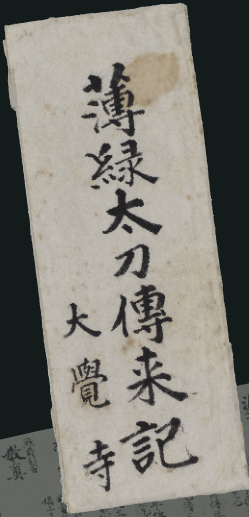 薄緑太刀傳来記
大覺寺